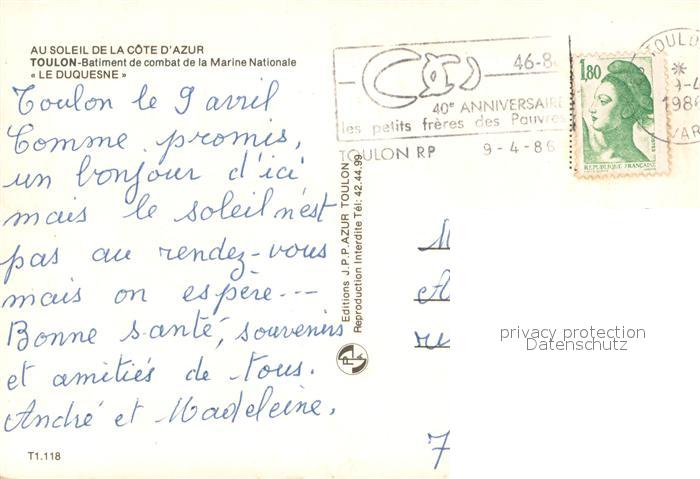 AU SOLEIL DE LA CÔTE D'AZUR
TOULON-Batiment de combat de la Marine Nationale
« LE DUQUESNE »
Toulon le 9 avril
Comme promis,
un bonjour d'ici
mais le soleil n'est
pas au rendez-vous
mais on espère---
Bonne santé, souvenirs
et amitiés de tous.
André et Madeleine.
T1.118
Editions J.P.P. AZUR TOULON
Reproduction Interdite Tél: 42.44.99.
46-8
40e ANNIVERSAIRE
les petits frères des Pauvres
TOULON RP 9-4-86
1,80
REPUBLIQUE FRANÇAISE
TOULO
9-4
1986
VAR
M
A
7
privacy protection
Datenschutz